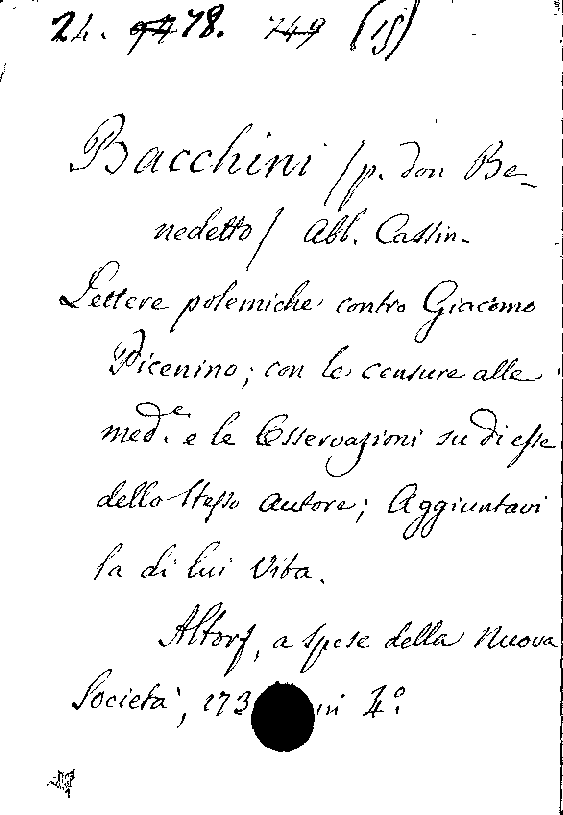 24. 94 78. 749 (15)
Bacchini /p. don Be-
nedetto/ Abb. Cassin.
Lettere polemiche contro Giacomo
Picenino; con le censure alle
med.e e le Osservazioni su di esse
dello stesso autore; Aggiuntavi
la di lui Vita.
Altorf, a spese della nuova
Società, 173 in 4°.